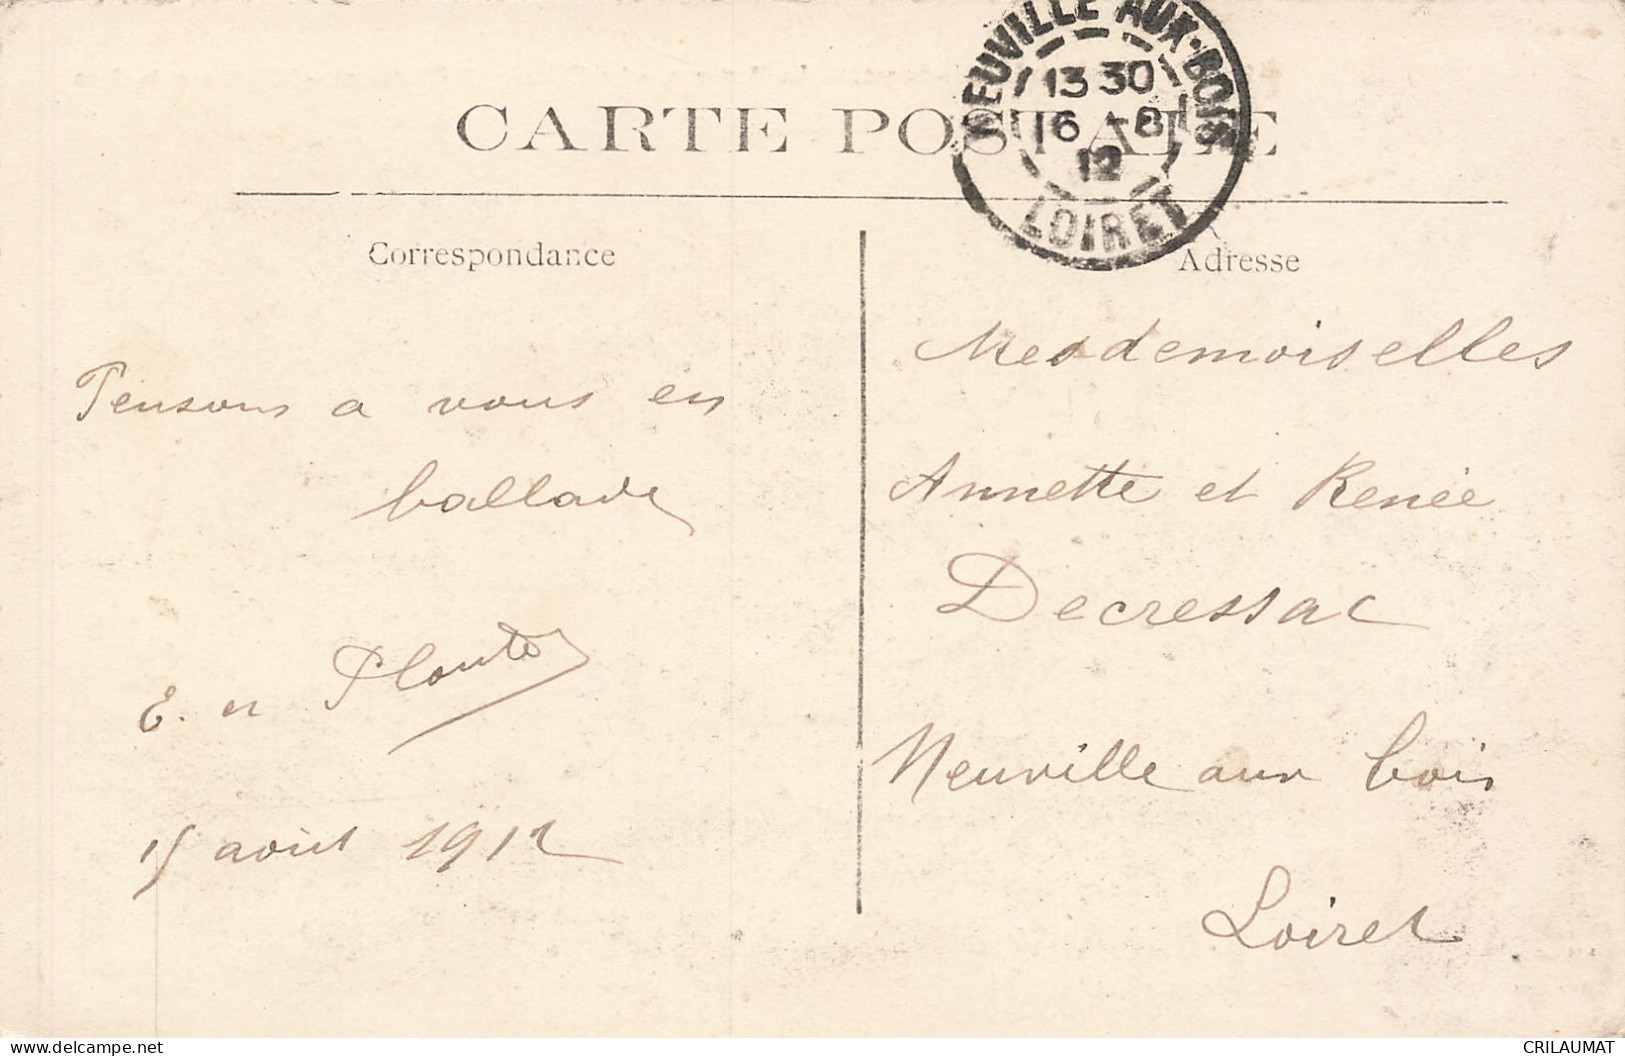 NEUVILLE AUX-BOIS
13 30
16 - 8
12
LOIRET
CARTE POSTALE
Correspondance
Adresse
Pensons a vous en
ballade
E. et
15 août 1912
Mesdemoiselles
Annette et Renée
Decressac
Neuville aux bois
Loiret
delcampe.net
CRILAUMAT